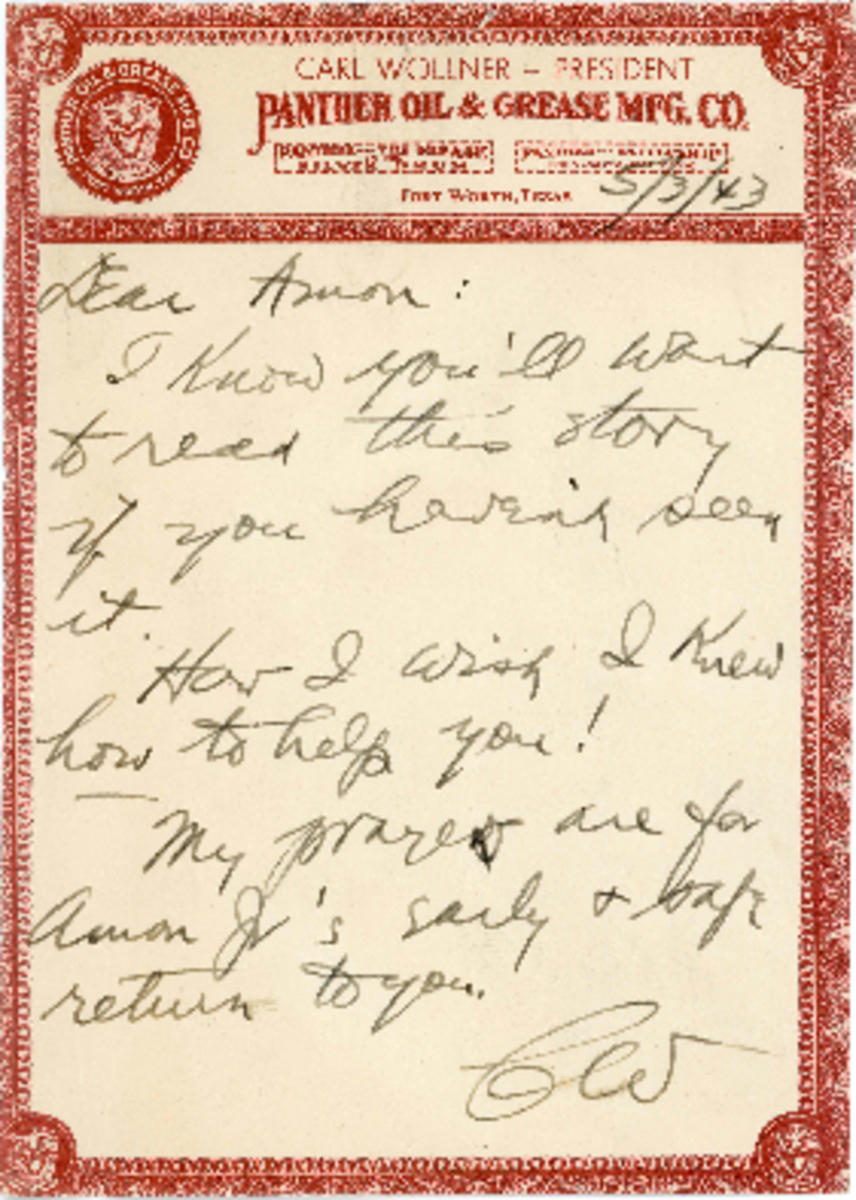 CARL WOLLNER – PRESIDENT
PANTHER OIL & GREASE MFG. CO.
FORT WORTH, TEXAS
5/3/43
Dear Amon:
I know you'll want
to read this story
if you haven't seen
it.
How I wish I knew
how to help you!
My prayers are for
Amon Jr's early & safe
return to you.
CW